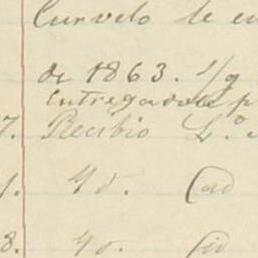 Curvelo le
de 1863. s/g
entregadole p
7. Recibio L.º
1. Yd. Cad
8. Yd. Cid